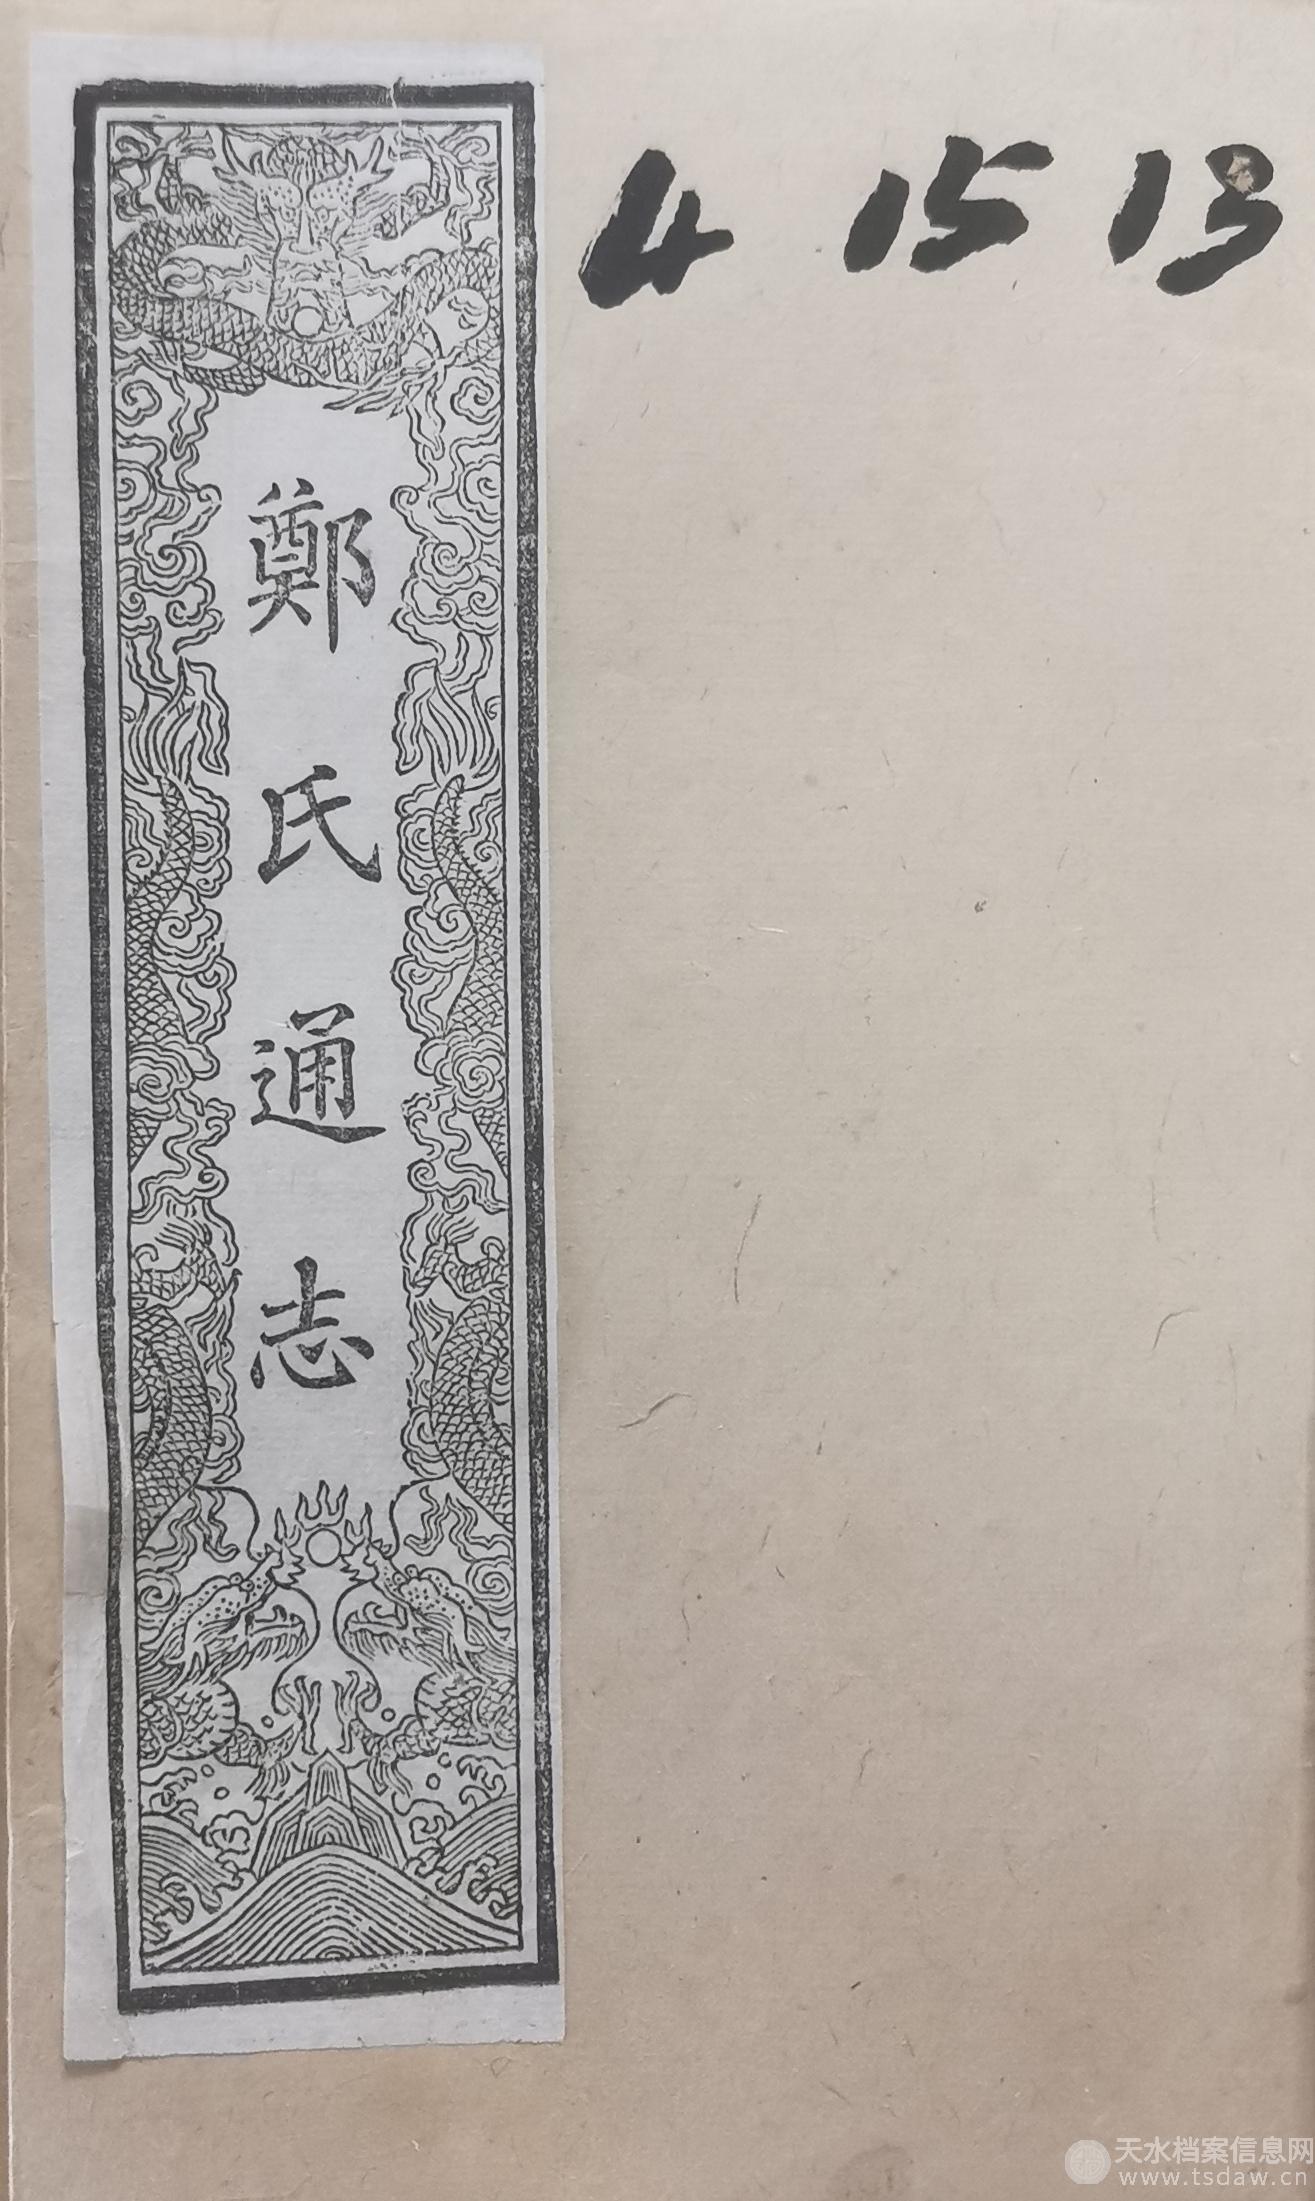 4 15 13
鄭氏通志
天水档案信息网
www.tsdaw.cn